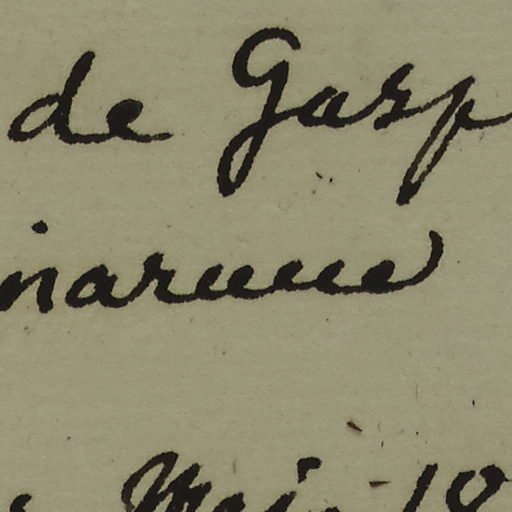 de Gasp
inarum
Mai 18